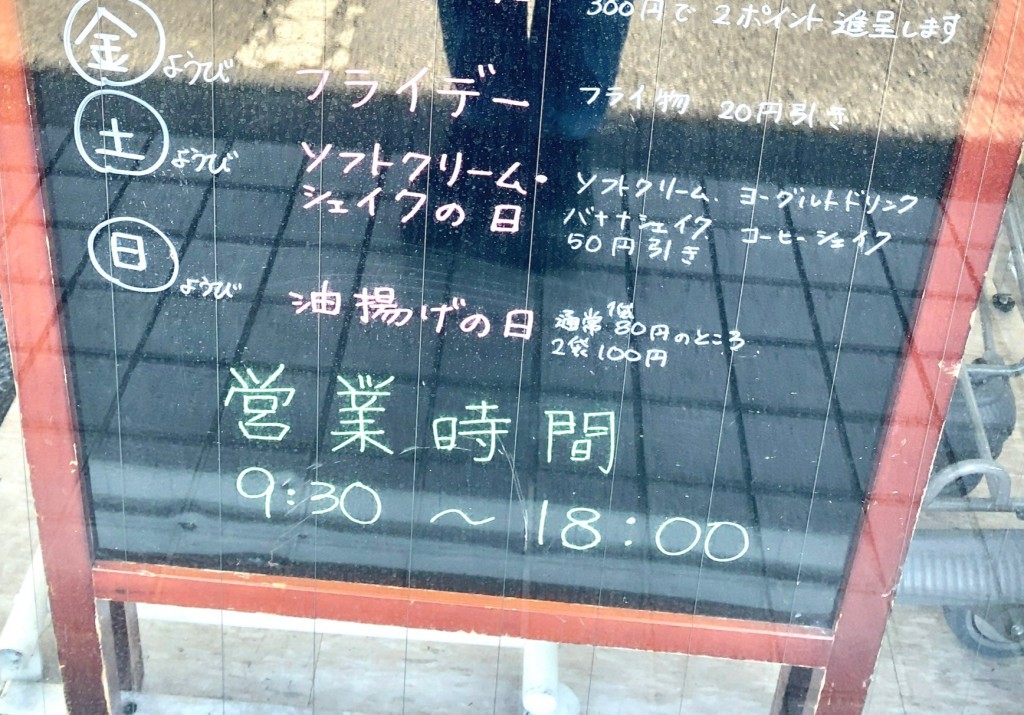 300円で 2ポイント 進呈します
金ようび フライデー フライ物 20円引き
土ようび ソフトクリーム・
シェイクの日
ソフトクリーム、ヨーグルトドリンク
バナナシェイク コーヒーシェイク
50円引き
日ようび 油揚げの日
通常1袋80円のところ
2袋100円
営業時間
9:30 〜 18:00